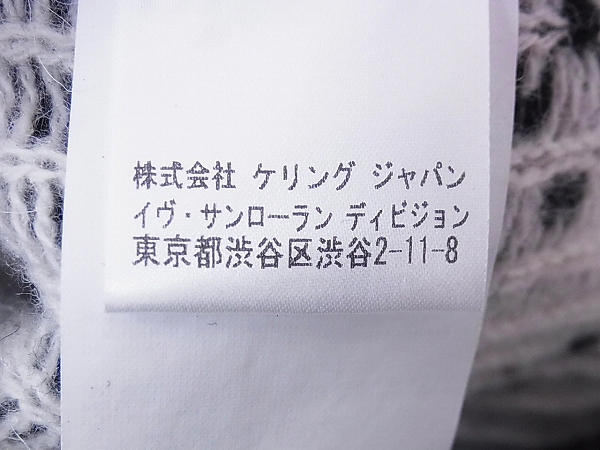 株式会社 ケリング ジャパン
イヴ・サンローラン ディビジョン
東京都渋谷区渋谷2-11-8